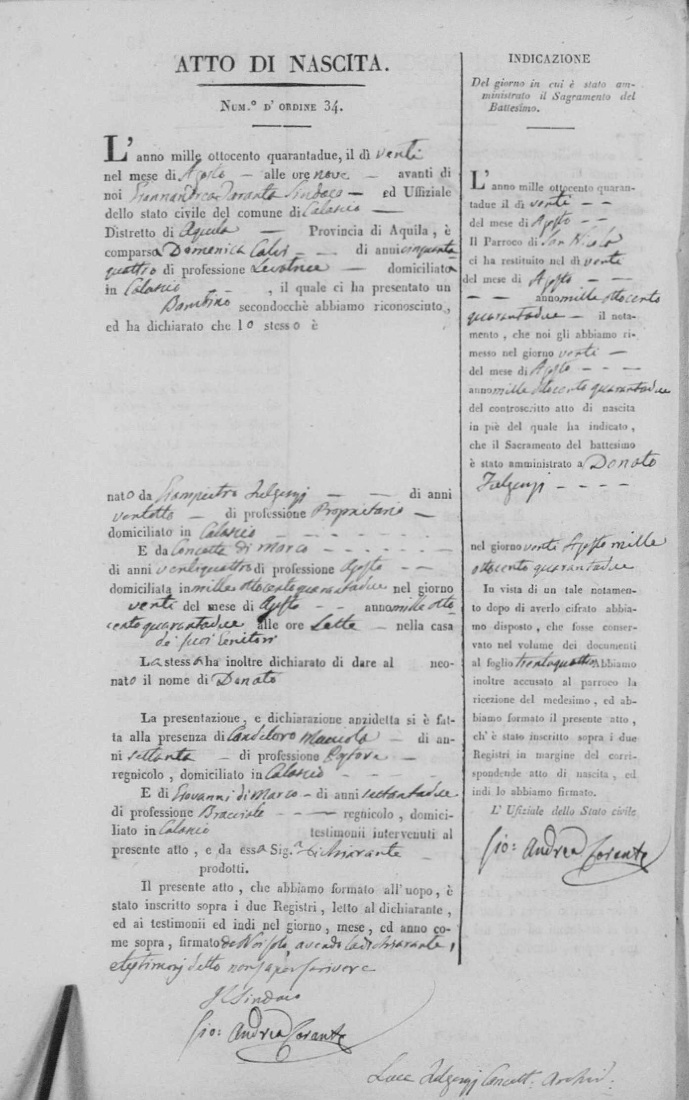 ATTO DI NASCITA.
NUM.° D' ORDINE 34.
L' anno mille ottocento quarantadue, il dì venti
nel mese di Agosto — alle ore nove — avanti di
noi Giannandrea Taranta Sindaco — ed Uffiziale
dello stato civile del comune di Calascio —
Distretto di Aquila — Provincia di Aquila, è
comparsa Domenica — di anni cinquanta
quattro di professione Levatrice — domiciliata
in Calascio — — , il quale ci ha presentato un
Bambino secondocchè abbiamo riconosciuto,
ed ha dichiarato che lo stesso è
nato da Giampietro — — di anni
ventotto — di professione Proprietario —
domiciliato in Calascio - - - - - -
E da Concetta di Marco - - - - - -
di anni ventiquattro di professione —
domiciliata in mille ottocento quarantadue nel giorno
venti del mese di Agosto - - anno mille otto
cento quarantadue alle ore Sette — nella casa
de' suoi Genitori
La stessa ha inoltre dichiarato di dare al neo-
nato il nome di Donato
La presentazione, e dichiarazione anzidetta si è fat-
ta alla presenza di — di an-
ni settanta — di professione —
regnicolo, domiciliato in Calascio - - - -
E di Giovanni di Marco — di anni settantadue
di professione Bracciale - - — regnicolo, domici-
liato in Calascio testimonii intervenuti al
presente atto, e da essa Sig.ª dichiarante —
prodotti.
Il presente atto, che abbiamo formato all' uopo, è
stato inscritto sopra i due Registri, letto al dichiarante,
ed ai testimonii ed indi nel giorno, mese, ed anno co-
me sopra, firmato da Noi solo, avendo la dichiarante,
e testimonj detto non saper scrivere
Il Sindaco
Gio: Andrea Taranta
INDICAZIONE
Del giorno in cui è stato am-
ministrato il Sagramento del
Battesimo.
L' anno mille ottocento quaran-
tadue il dì venti - -
del mese di Agosto - -
Il Parroco di San Nicola
ci ha restituito nel dì venti
del mese di Agosto - -
- — anno mille ottocento
quarantadue — il nota-
mento, che noi gli abbiamo ri-
messo nel giorno venti —
del mese di Agosto - - -
anno mille ottocento quarantadue
del controscritto atto di nascita
in piè del quale ha indicato,
che il Sacramento del battesimo
è stato amministrato a Donato
- - - -
nel giorno venti Agosto mille
ottocento quarantadue
In vista di un tale notamento
dopo di averlo cifrato abbia-
mo disposto, che fosse conser-
vato nel volume dei documenti
al foglio trentaquattro Abbiamo
inoltre accusato al parroco la
ricezione del medesimo, ed ab-
biamo formato il presente atto,
ch' è stato inscritto sopra i due
Registri in margine del corri-
spondende atto di nascita, ed
indi lo abbiamo firmato.
L' Ufiziale dello Stato civile
Gio: Andrea Taranta